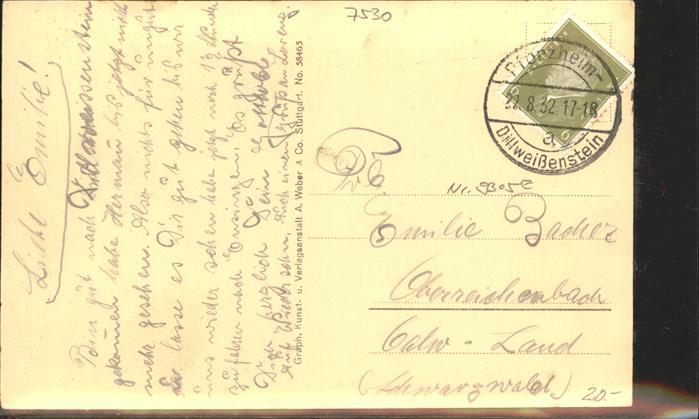 Liebe Emilie!
Bin gut nach Dillweissenstein
gekommen habe Herman bis jetzt nicht
mehr gesehen. Also nichts für ungut
lasse es Dir gut gehen bis wir
uns wieder sehen habe jetzt noch 1½ Stunde
zu fahren nach Es grüßt
Dich herzlich Dein
Auf Wiedersehn, Noch einen Gruß an
Graph. Kunst- u. Verlagsanstalt A. Weber & Co. Stuttgart. No. 58465
7530
Pforzheim-
8.32.17-18
a
Dillweißenstein
6
6
Nr. 9305E
Emilie Bacher
Oberreichenbach
Calw-Land
(Schwarzwald)
20.-